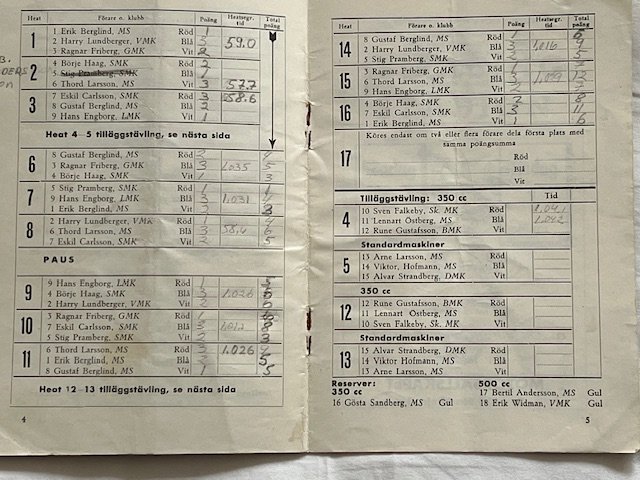 Heat Förare o. klubb Poäng Heatsegr. tid Total poäng
1 1 Erik Berglind, MS Röd 1
2 Harry Lundberger, VMK Blå 3 59.0
3 Ragnar Friberg, GMK Vit 2
2 4 Börje Haag, SMK Röd 2
5 Stig Pramberg, SMK Blå
6 Thord Larsson, MS Vit 3 57.7
3 7 Eskil Carlsson, SMK Röd 3 58.6
8 Gustaf Berglind, MS Blå 2
9 Hans Engborg, LMK Vit 1
Heat 4–5 tilläggstävling, se nästa sida
6 8 Gustaf Berglind, MS Röd 2 4
3 Ragnar Friberg, GMK Blå 3 1.035 5
4 Börje Haag, SMK Vit 1 3
7 5 Stig Pramberg, SMK Röd 1 1
9 Hans Engborg, LMK Blå 3 1.031 4
1 Erik Berglind, MS Vit 2 3
8 2 Harry Lundberger, VMK Röd 1 4
6 Thord Larsson, MS Blå 3 58.6 6
7 Eskil Carlsson, SMK Vit 2 5
PAUS
9 9 Hans Engborg, LMK Röd 1 5
4 Börje Haag, SMK Blå 3 1.026
2 Harry Lundberger, VMK Vit 2
10 3 Ragnar Friberg, GMK Röd 1
7 Eskil Carlsson, SMK Blå 3 1.012 8
5 Stig Pramberg, SMK Vit 2 3
11 6 Thord Larsson, MS Röd 1.026
1 Erik Berglind, MS Blå
8 Gustaf Berglind, MS Vit 1 5
Heat 12–13 tilläggstävling, se nästa sida
4
Heat Förare o. klubb Poäng Heatsegr. tid Total poäng
14 8 Gustaf Berglind, MS Röd 1 6
2 Harry Lundberger, VMK Blå 3 1.016
5 Stig Pramberg, SMK Vit 2 5
15 3 Ragnar Friberg, GMK Röd
6 Thord Larsson, MS Blå 3 1.009 12
9 Hans Engborg, LMK Vit 2 7
16 4 Börje Haag, SMK Röd 2 8
7 Eskil Carlsson, SMK Blå 3 11
1 Erik Berglind, MS Vit 1 6
17 Köres endast om två eller flera förare dela första plats med
samma poängsumma
Röd
Blå
Vit
Tilläggstävling: 350 cc Tid
4 10 Sven Falkeby, Sk. MK Röd 1.041
11 Lennart Östberg, MS Blå 1.042
12 Rune Gustafsson, BMK Vit
Standardmaskiner
5 13 Arne Larsson, MS Röd
14 Viktor, Hofmann, MS Blå
15 Alvar Strandberg, DMK Vit
350 cc
12 12 Rune Gustafsson, BMK Röd
11 Lennart Östberg, MS Blå
10 Sven Falkeby, Sk. MK Vit
Standardmaskiner
13 15 Alvar Strandberg, DMK Röd
14 Viktor Hofmann, MS Blå
13 Arne Larsson, MS Vit
Reserver:
350 cc 500 cc
16 Gösta Sandberg, MS Gul 17 Bertil Andersson, MS Gul
18 Erik Widman, VMK Gul
5